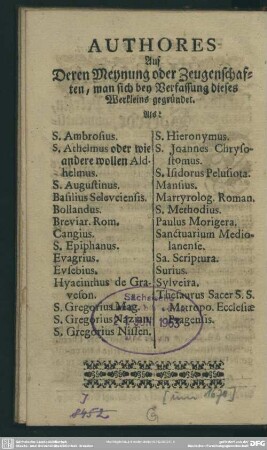 AUTHORES
Auf
Deren Meynung oder Zeugenschaf-
ten, man sich bey Verfassung dieses
Werkleins gegründet.
Als:
S. Ambrosius.
S. Athelmus oder wie
andere wollen Ald-
helmus.
S. Augustinus.
Basilius Seleuciensis.
Bollandus.
Breviar. Rom.
Cangius.
S. Epiphanus.
Evagrius.
Eusebius.
Hyacinthus de Gra-
veson.
S. Gregorius Mag.
S. Gregorius Nazian.
S. Gregorius Nissen.
S. Hieronymus.
S. Joannes Chryso-
stomus.
S. Isidorus Pelusiota.
Mansius.
Martyrolog. Roman.
S. Methodius.
Paulus Morigera.
Sanctuarium Medio-
lanense.
Sa. Scriptura.
Surius.
Sylveira.
Thesaurus Sacer S. S.
Metropo. Ecclesiæ
Pragensis.
1963